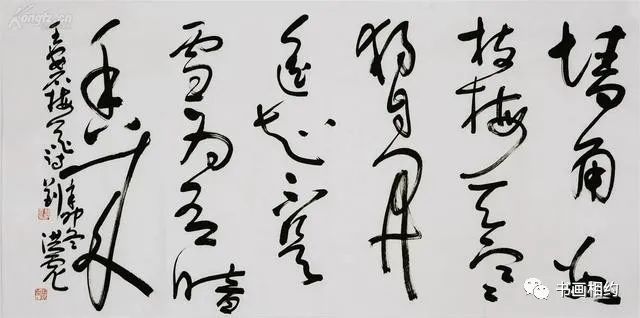 墙角数
枝梅凌寒
独自开
遥知不是
雪为有暗
香来
王安石梅花诗
辛卯冬
洪彪
书画相约